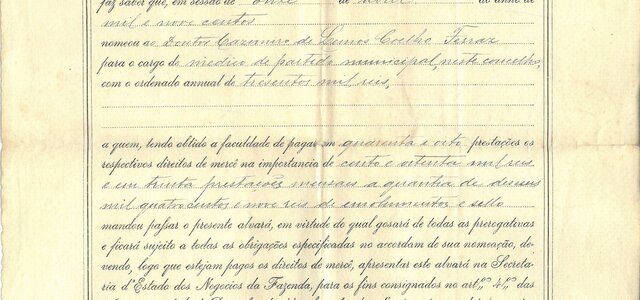 faz saber que, em sessão de onze de Abril do anno de
mil e nove centos
nomeou ao Doutor Cazimiro de Lemos Coelho Ferraz
para o cargo de medico de partido municipal, neste concelho,
com o ordenado annual de tresentos mil reis,
a quem, tendo obtido a faculdade de pagar em quarenta e oito prestações os
respectivos direitos de mercê na importancia de cento e oitenta mil reis
e em trinta prestações mensaes a quantia de
mil quatrocentos e nove reis de emolumentos e sello
mandou passar o presente alvará, em virtude do qual gosará de todas as prerogativas
e ficará sujeito a todas as obrigações especificadas no accordam de sua nomeação, de-
vendo, logo que estejam pagos os direitos de mercê, apresentar este alvará na Secreta-
ria d'Estado dos Negocios da Fazenda, para os fins consignados no art.º 4.º das